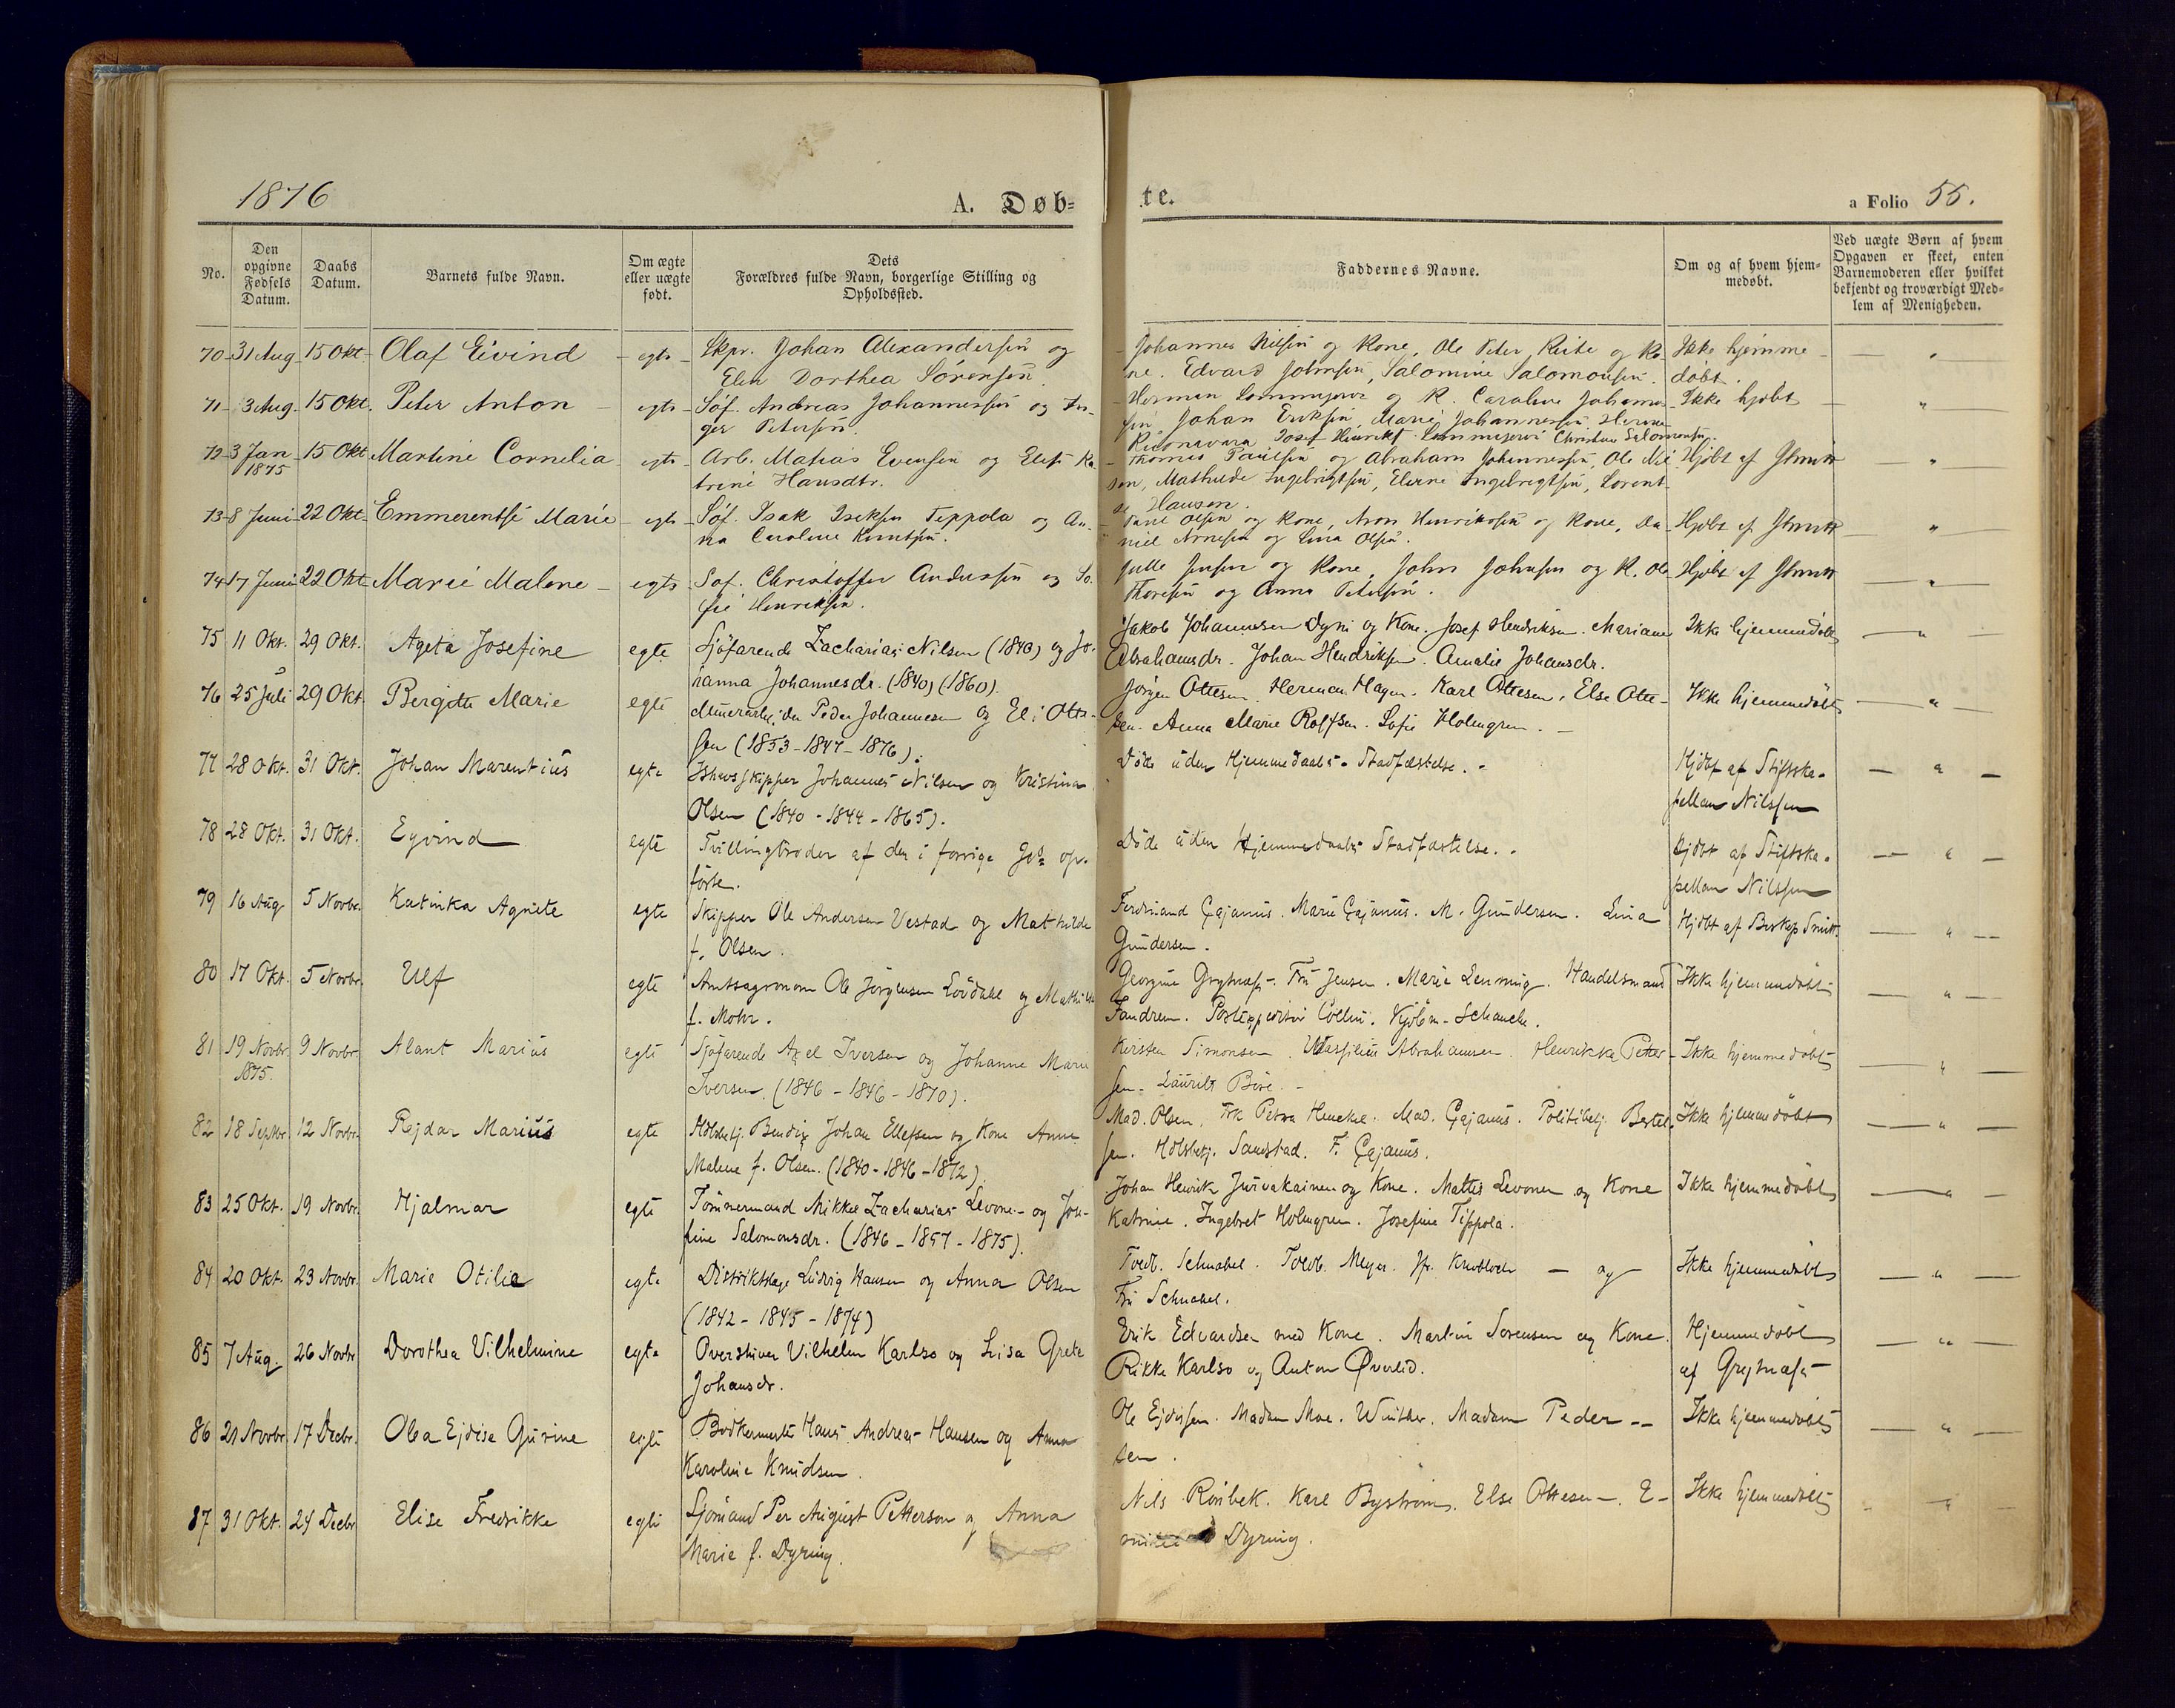 1876
A. Døb=
te.
a Folio 55.
No.
Den opgivne Fødsels Datum.
Daabs Datum.
Barnets fulde Navn.
Om ægte eller uægte født.
Dets Forældres fulde Navn, borgerlige Stilling og Opholdssted.
Faddernes Navne.
Om og af hvem hjem= medøbt.
Ved uægte Børn af hvem Opgaven er skeet, enten Barnemoderen eller hvilket bekjendt og troværdigt Med= lem af Menigheden.
70 31 Aug 15 Okt Olaf Eivind egte Skpr. Johan Alexandersen og
Elen Dorthea Sorensen.
Johannes Nilsen og Kone, Ole Peter og Ko-
ne. Edvard Johnsen, Salomine Salomonsen.
Ikke hjemme
døbt.
71 3 Aug. 15 Okt. Peter Anton egte Søf. Andreas Johannessen og In-
ger Petersen.
Herman Lommijervi og K. Caroline Johannes-
sen, Johan Eriksen, Marie Johannessen,
Josef Henrikf. Lommijervi Christine Salomonsen.
Ikke hjdøbt
72 3 Jan 1875 15 Okt Martine Cornelia egte Arb. Matias Evensen og Elen Ka
trine Hansdtr.
Thomas Paulsen og Abraham Johannessen, Ole Nil
sen, Mathilde Ingebrigtsen, Elerine Ingebrigtsen, Lorent-
se Hansen.
Hjdbt af
73 8 Juni 22 Okt. Emmerentse Marie egte Søf. Isak Isaksen Teppola og An-
na Caroline Knutsen.
Olsen og Kone, Aron Henriksen og Kone, Da-
niel Arnesen og Lina Olsen.
Hjdbt af
74 17 Juni 22 Okt Marie Malene egte Søf. Christoffer Andersen og So
fie Henriksen.
Jensen og Kone, John Johnsen og K. Ole
Thoresen og Anna Petersen.
Hjdbt af
75 11 Okt. 29 Okt. Ageta Josefine egte Sjöfarende Zacharias Nilsen (1840) og Jo-
hanna Johannesdr. (1840) (1860).
Jakob Johannessen Dyni og Kone. Josef Hendriksen. Mariane
Abrahamsdr. Johan Hendriksen. Amalie Johansdr.
Ikke hjemmedöbt
76 25 Juli 29 Okt. Bergitte Marie egte Murerarbeider Peder Johannesen og Eli Otte-
sen (1853-1847-1876).
Jörgen Ottesen. Herman Hagen. Karl Ottesen. Else Otte-
sen. Anna Marie Rolfsen. Sofie Holmgren.
Ikke hjemmedöbt
77 28 Okt. 31 Okt. Johan Marentius egte Ishavsskipper Johannes Nilsen og Kristina
Olsen (1840-1844-1865).
Döde uden Hjemmedaabs Stadfæstelse.
Hjdbt af Stiftska-
pellan Nilssen
78 28 Okt. 31 Okt. Eyvind egte Tvillingbroder af den i forrige No op-
förte.
Döde uden Hjemmedaabs Stadfæstelse.
Hjdbt af Stiftska-
pellan Nilssen
79 16 Aug 5 Novbr. Katinka Agnete egte Skipper Ole Andersen Vestad og Mathilde
f. Olsen.
Ferdinand Cajanus. Marie Cajanus. M. Gundersen. Lina
Gundersen.
Hjdbt af Biskop Smitt
80 17 Okt. 5 Novbr. Ulf egte Amtsagronom Ole Jörgensen Lövdahl og Mathilde
f. Mohr.
Georgine Grythness. Fru Jensen. Marie Lenning. Handelsmand
Fandrem. Postexpeditör Collin. Kjöbm. Schanche.
Ikke hjemmedöbt
81 19 Novbr. 1875. 9 Novbr. Alant Marius egte Sjöfarende Axel Iversen og Johanne Marie
Iversen. (1846-1846-1870).
Kirsten Simonsen. Wasfilius Abrahamsen. Henrikke Peter-
sen. Laurits
Ikke hjemmedöbt
82 18 Septbr. 12 Novbr. Rejdar Marius egte Hdlsbetj. Bendix Johan Ellefsen og Kone Anne
Malene f. Olsen. (1840-1846-1872)
Mad. Olsen. Frk Petra Mad. Cajanus. Politibetj. Bertel-
sen. Hdlsbetj. Sandstad. F. Cajanus.
Ikke hjemmedöbt
83 25 Okt. 19 Novbr. Hjalmar egte Tömmermand Mikkel Zacharias Levone og Jose-
fine Salomonsdr. (1846-1857-1875).
Johan Henrik Jurvakainen og Kone. Mattis Levonen og Kone
Katrine. Ingebret Holmgren. Josefine Tippola.
Ikke hjemmedöbt
84 20 Okt. 23 Novbr. Marie Otilie egte Distriktslæge Ludvig Hansen og Anna Olsen
(1842-1845-1874)
Toldb. Schnabel. Toldb. Meyer. og
Fru Schnabel.
Ikke hjemmedöbt
85 7 Aug. 26 Novbr Dorothea Vilhelmine egte Opverskiver Vilhelm Karlso og Lisa Grete
Johansdr.
Erik Edvardsen med Kone. Martin Sorensen og Kone.
Rikke Karlso og Anton Øverlid.
Hjemmedöbt
af
86 21 Novbr. 17 Decbr. Olea Ejdise Gurine egte Bödkermester Hans Andreas Hansen og Anna
Karoline Knudsen.
Ole Ejdissen. Madam Moe. Winther. Madam Peder-
sen.
Ikke hjemmedöbt
87 31 Okt. 24 Decbr Elise Fredrikke egte Sjömand Per August Petterson og Anna
Marie f. Dyring.
Nils Rönbek. Karl Byström. Else Ottesen. E-
Dyring.
Ikke hjemmedöbt